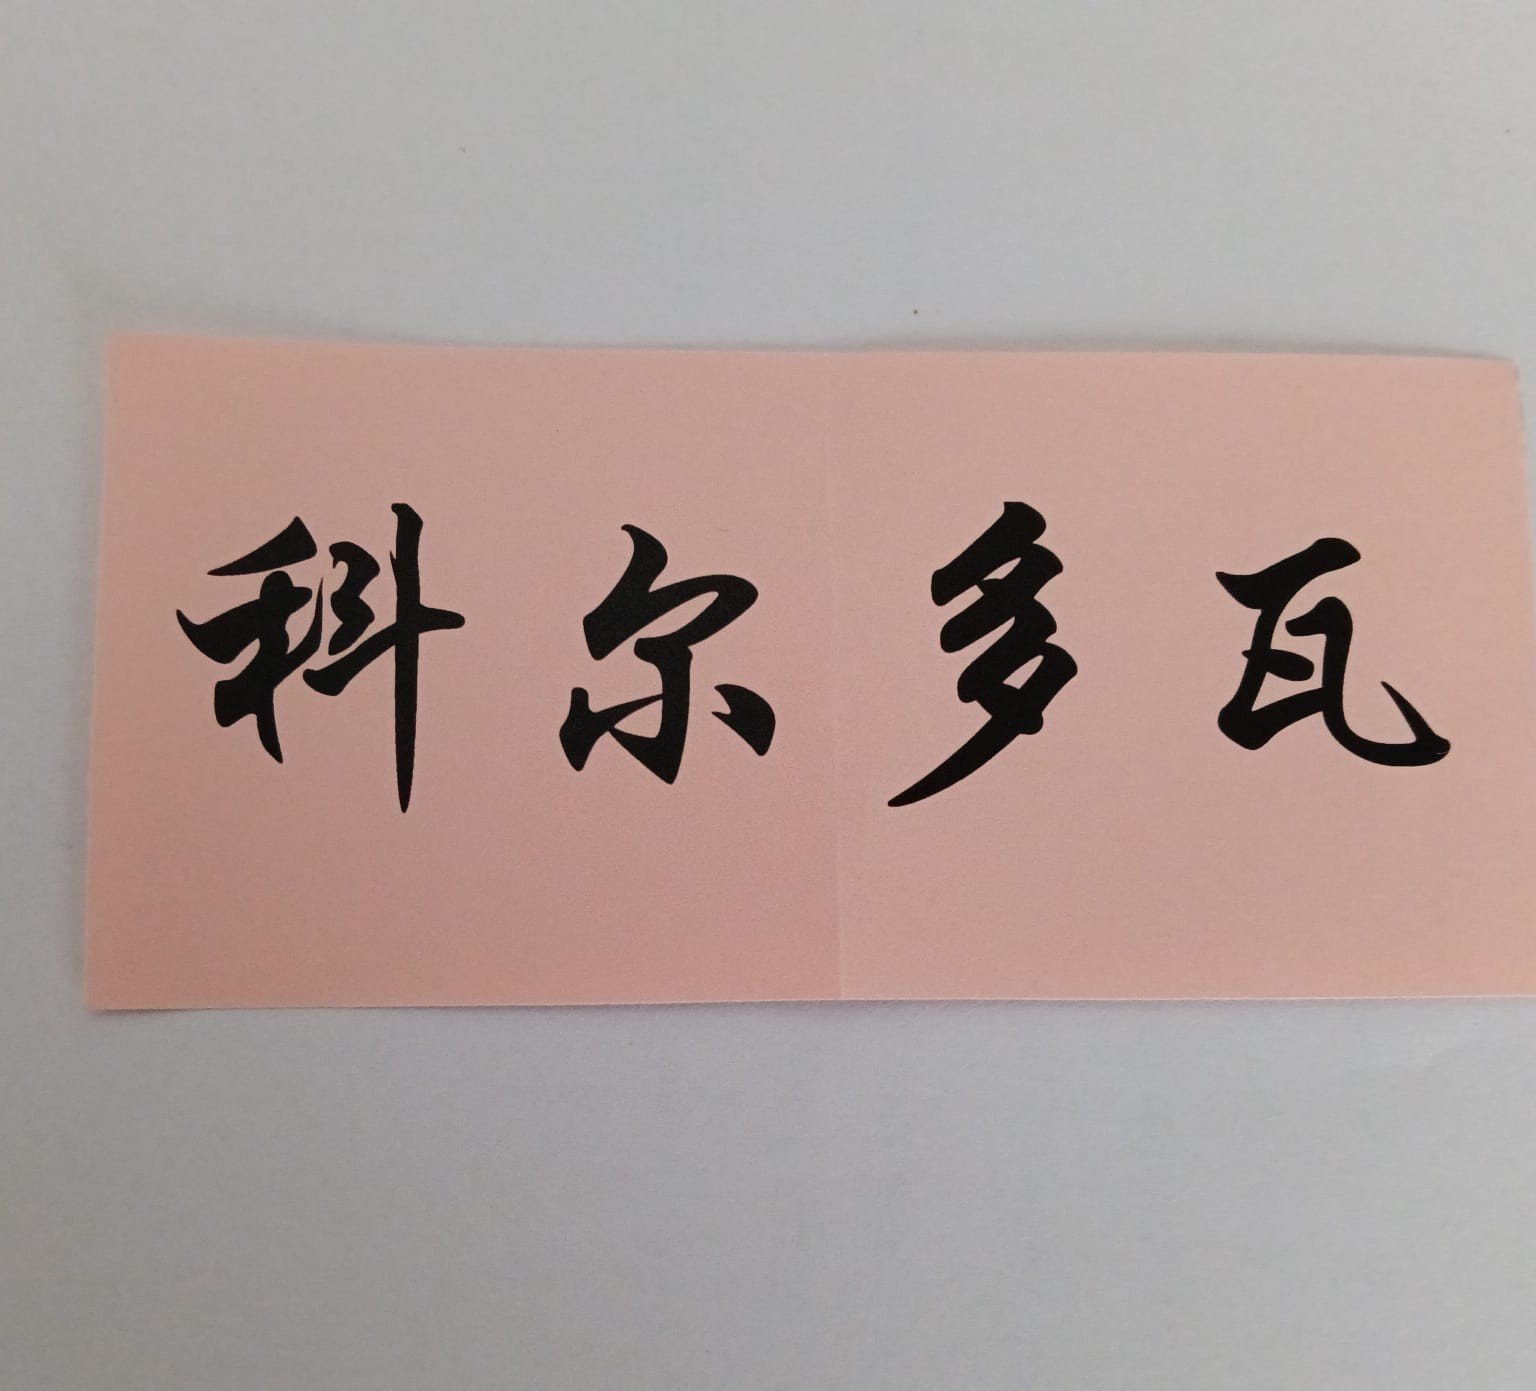 科尔多瓦